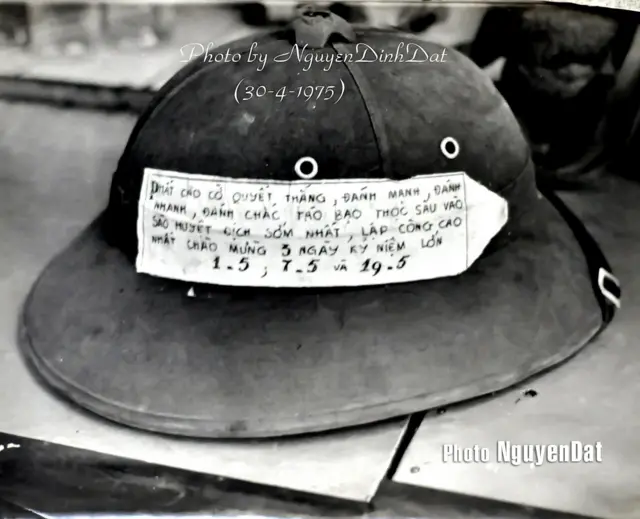 Photo by NguyenDinhDat
(30-4-1975)
PHẤT CAO CỜ QUYẾT THẮNG, ĐÁNH MẠNH, ĐÁNH
NHANH, ĐÁNH CHẮC TÁO BẠO THỌC SÂU VÀO
SÀO HUYỆT ĐỊCH SỚM NHẤT, LẬP CÔNG CAO
NHẤT CHÀO MỪNG 3 NGÀY KỶ NIỆM LỚN
1.5, 7.5 VÀ 19.5
Photo NguyenDat